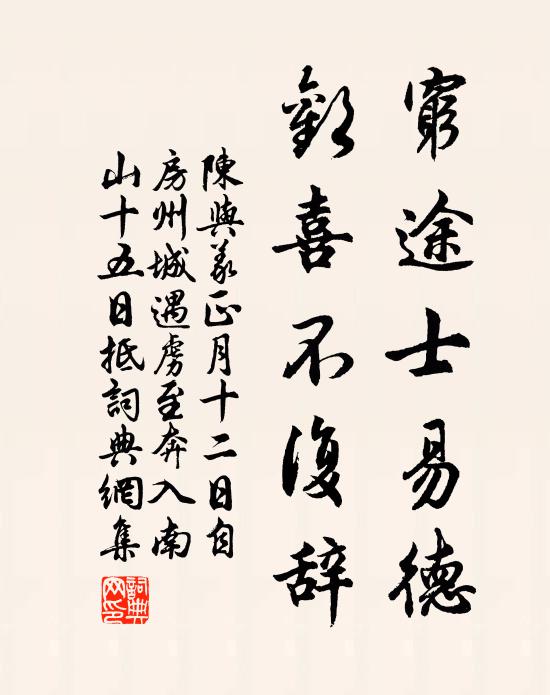 窮途士易德
歡喜不復辞
陳與義正月十二日自
房州城遇虜至奔入南
山十五日抵詞典網集
詞典网印